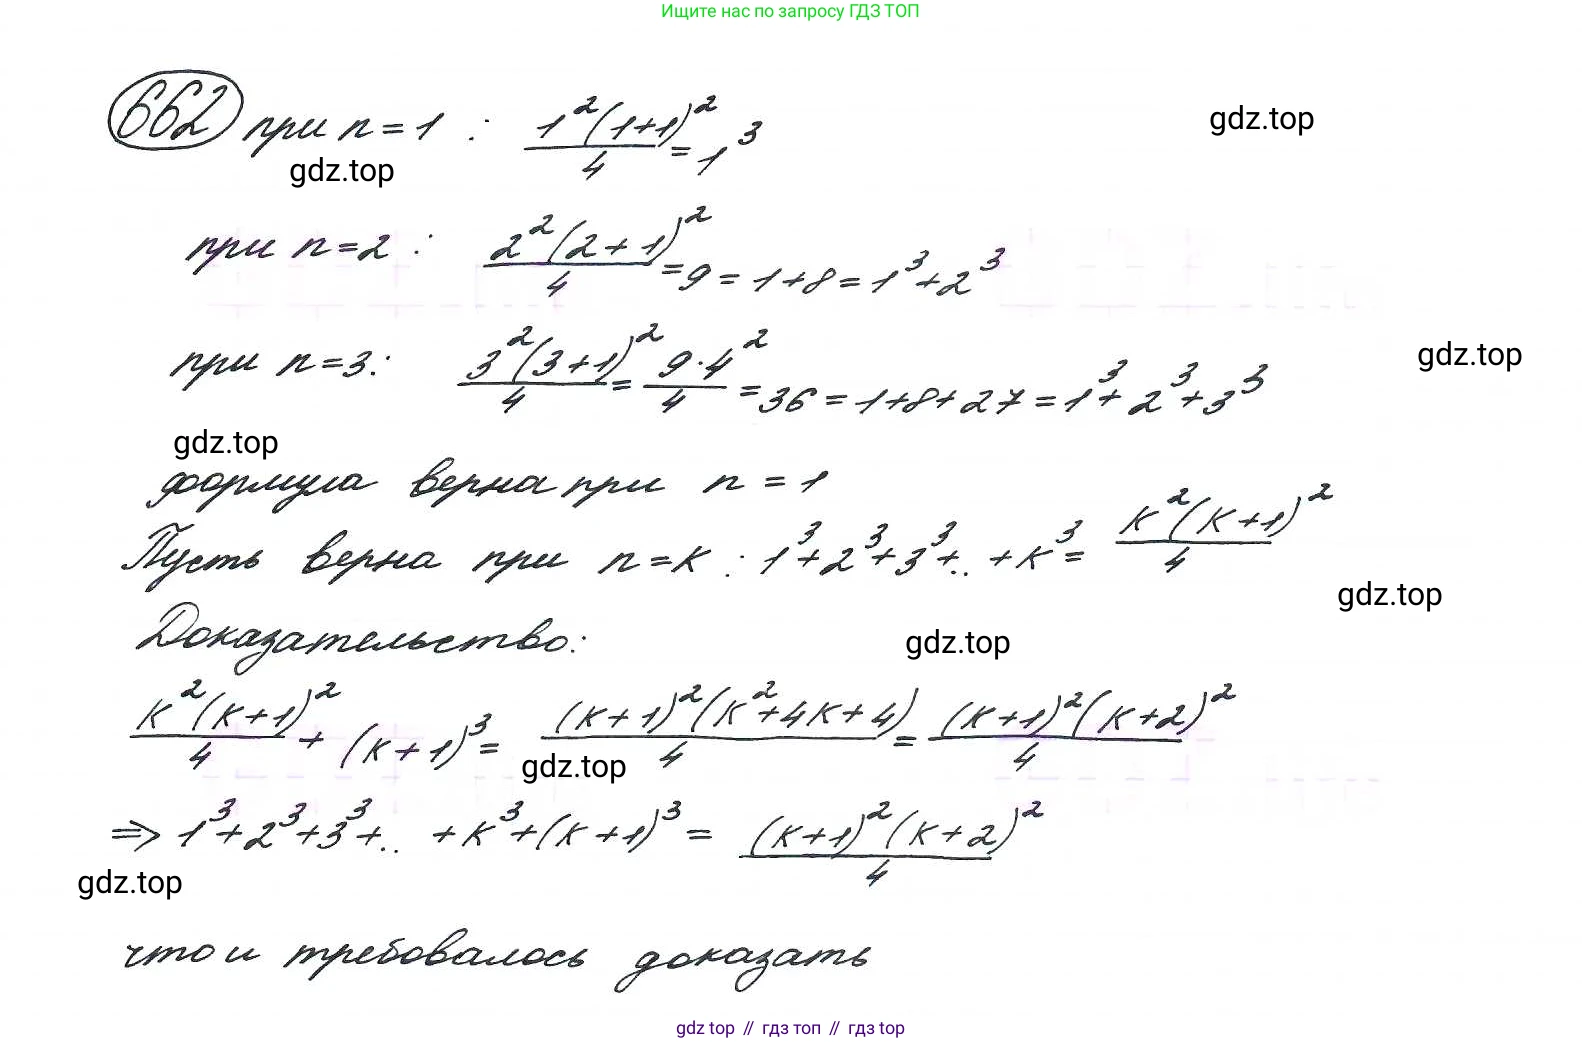 Ищите нас по запросу ГДЗ ТОП
662 при n=1 : 1²(1+1)²/4 = 1³
gdz.top
gdz.top
при n=2 : 2²(2+1)²/4 = 9 = 1+8 = 1³+2³
при n=3: 3²(3+1)²/4 = 9·4²/4 = 36 = 1+8+27 = 1³+2³+3³
gdz.top
gdz.top
формула верна при n = 1
Пусть верна при n=k : 1³+2³+3³+.. +k³= k²(k+1)²/4
gdz.top
Доказательство:
gdz.top
k²(k+1)²/4 + (k+1)³= (k+1)²(k²+4k+4)/4 = (k+1)²(k+2)²/4
gdz.top
⇒ 1³+2³+3³+.. +k³+(k+1)³ = (k+1)²(k+2)²/4
gdz.top
что и требовалось доказать
gdz top // гдз топ // гдз top